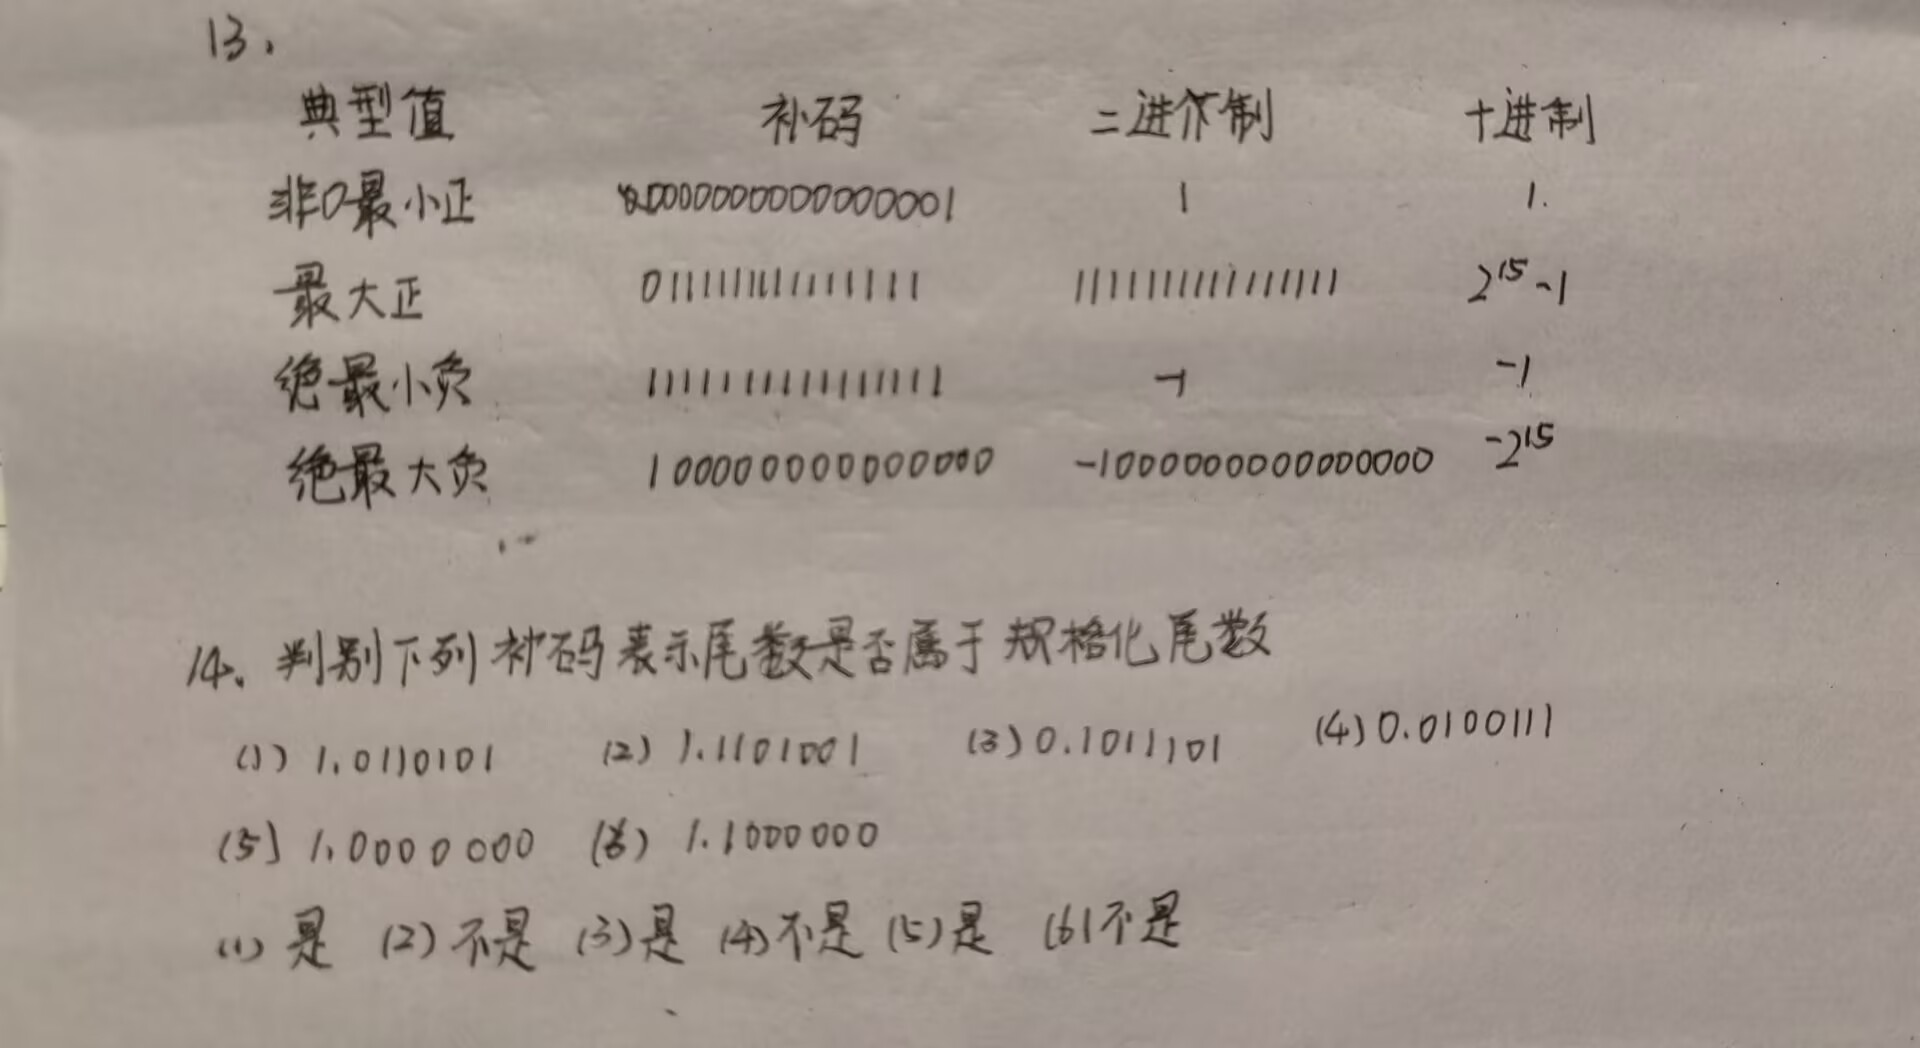 13.
典型值 补码 二进制 十进制
非0最小正 0000000000000001 1 1.
最大正 0111111111111111 111111111111111 2^15-1
绝最小负 1111111111111111 -1 -1
绝最大负 1000000000000000 -1000000000000000 -2^15
14. 判别下列补码表示尾数是否属于规格化尾数
(1) 1.0110101 (2) 1.1101001 (3) 0.1011101 (4) 0.0100111
(5) 1.0000000 (6) 1.1000000
(1) 是 (2) 不是 (3) 是 (4) 不是 (5) 是 (6) 不是